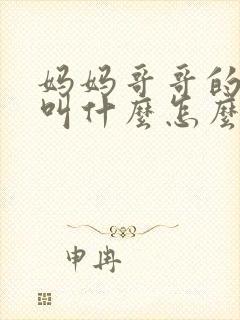 妈妈哥哥的
叫什麼怎麼
申冉